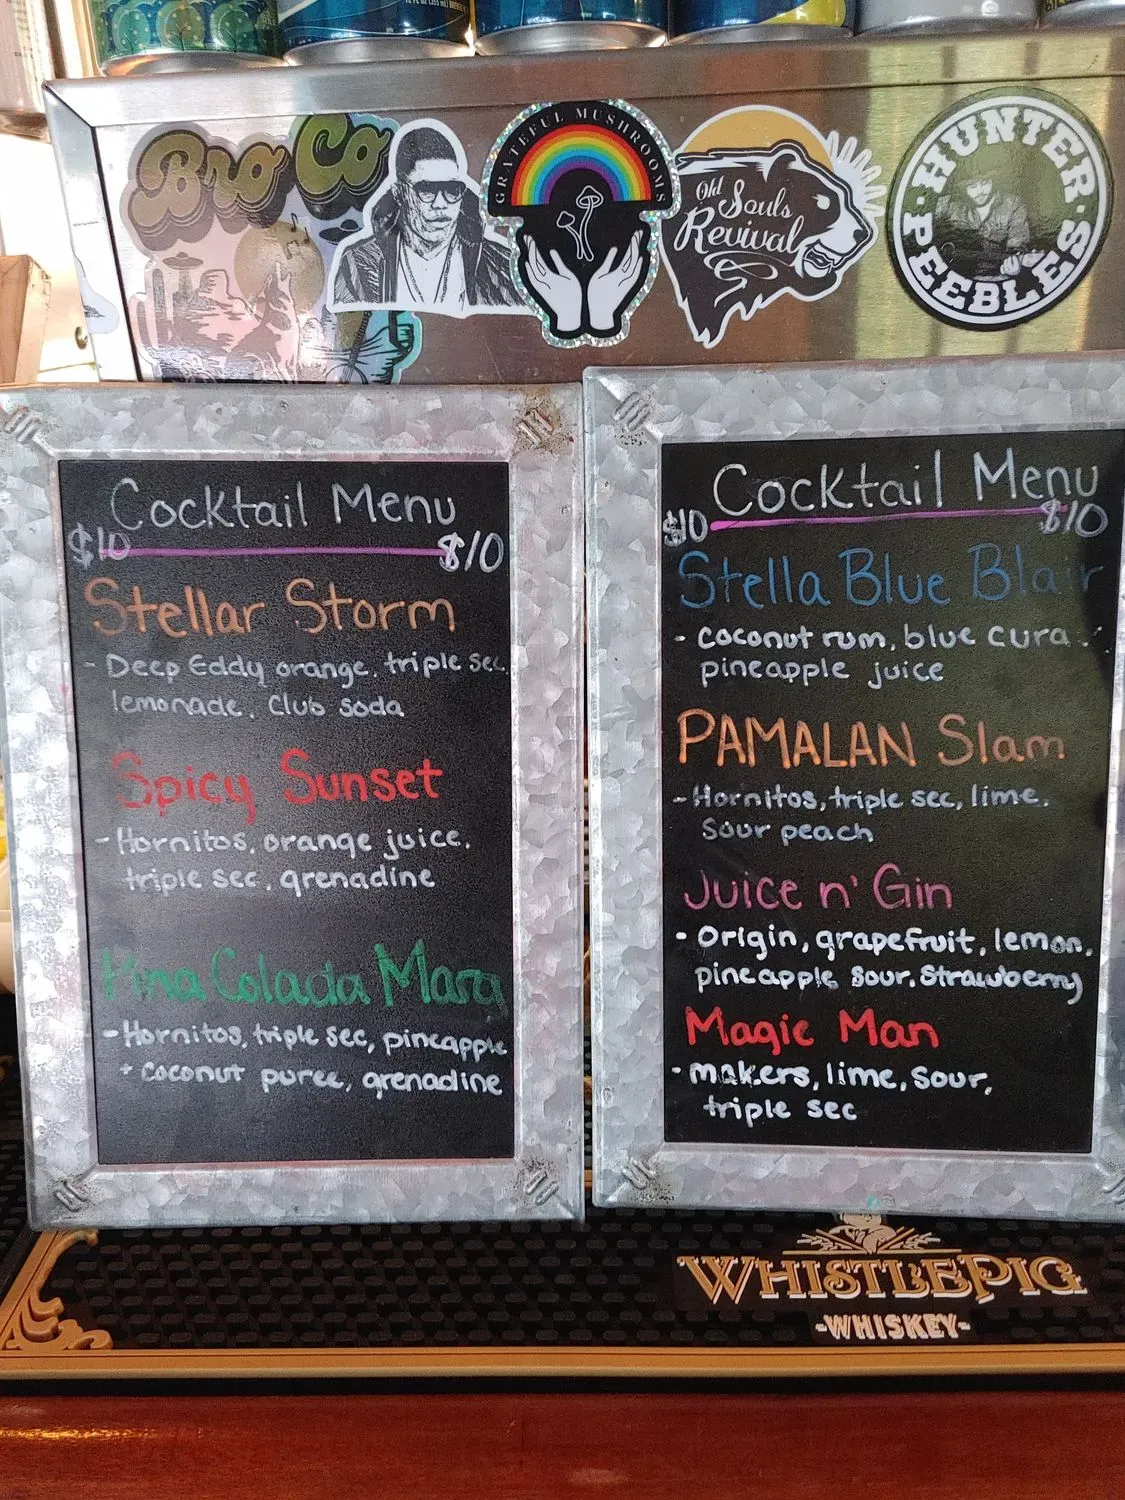 12 FL OZ (355 mL)
Bro Co
GRATEFUL MUSHROOMS
Old
Souls
Revival
HUNTER
PEEBLES
Cocktail Menu
$10 $10
Stellar Storm
- Deep Eddy orange, triple sec,
lemonade, Club soda
Spicy Sunset
- Hornitos, orange juice,
triple sec, grenadine
Pina Colada Marg
- Hornitos, triple sec, pineapple
+ coconut puree, grenadine
Cocktail Menu
$10 $10
Stella Blue Blair
- coconut rum, blue cura
pineapple juice
PAMALAN Slam
- Hornitos, triple sec, lime,
sour peach
Juice n' Gin
- Origin, grapefruit, lemon,
pineapple, sour, strawberry
Magic Man
- makers, lime, sour,
triple sec
WHISTLEPIG
-WHISKEY-